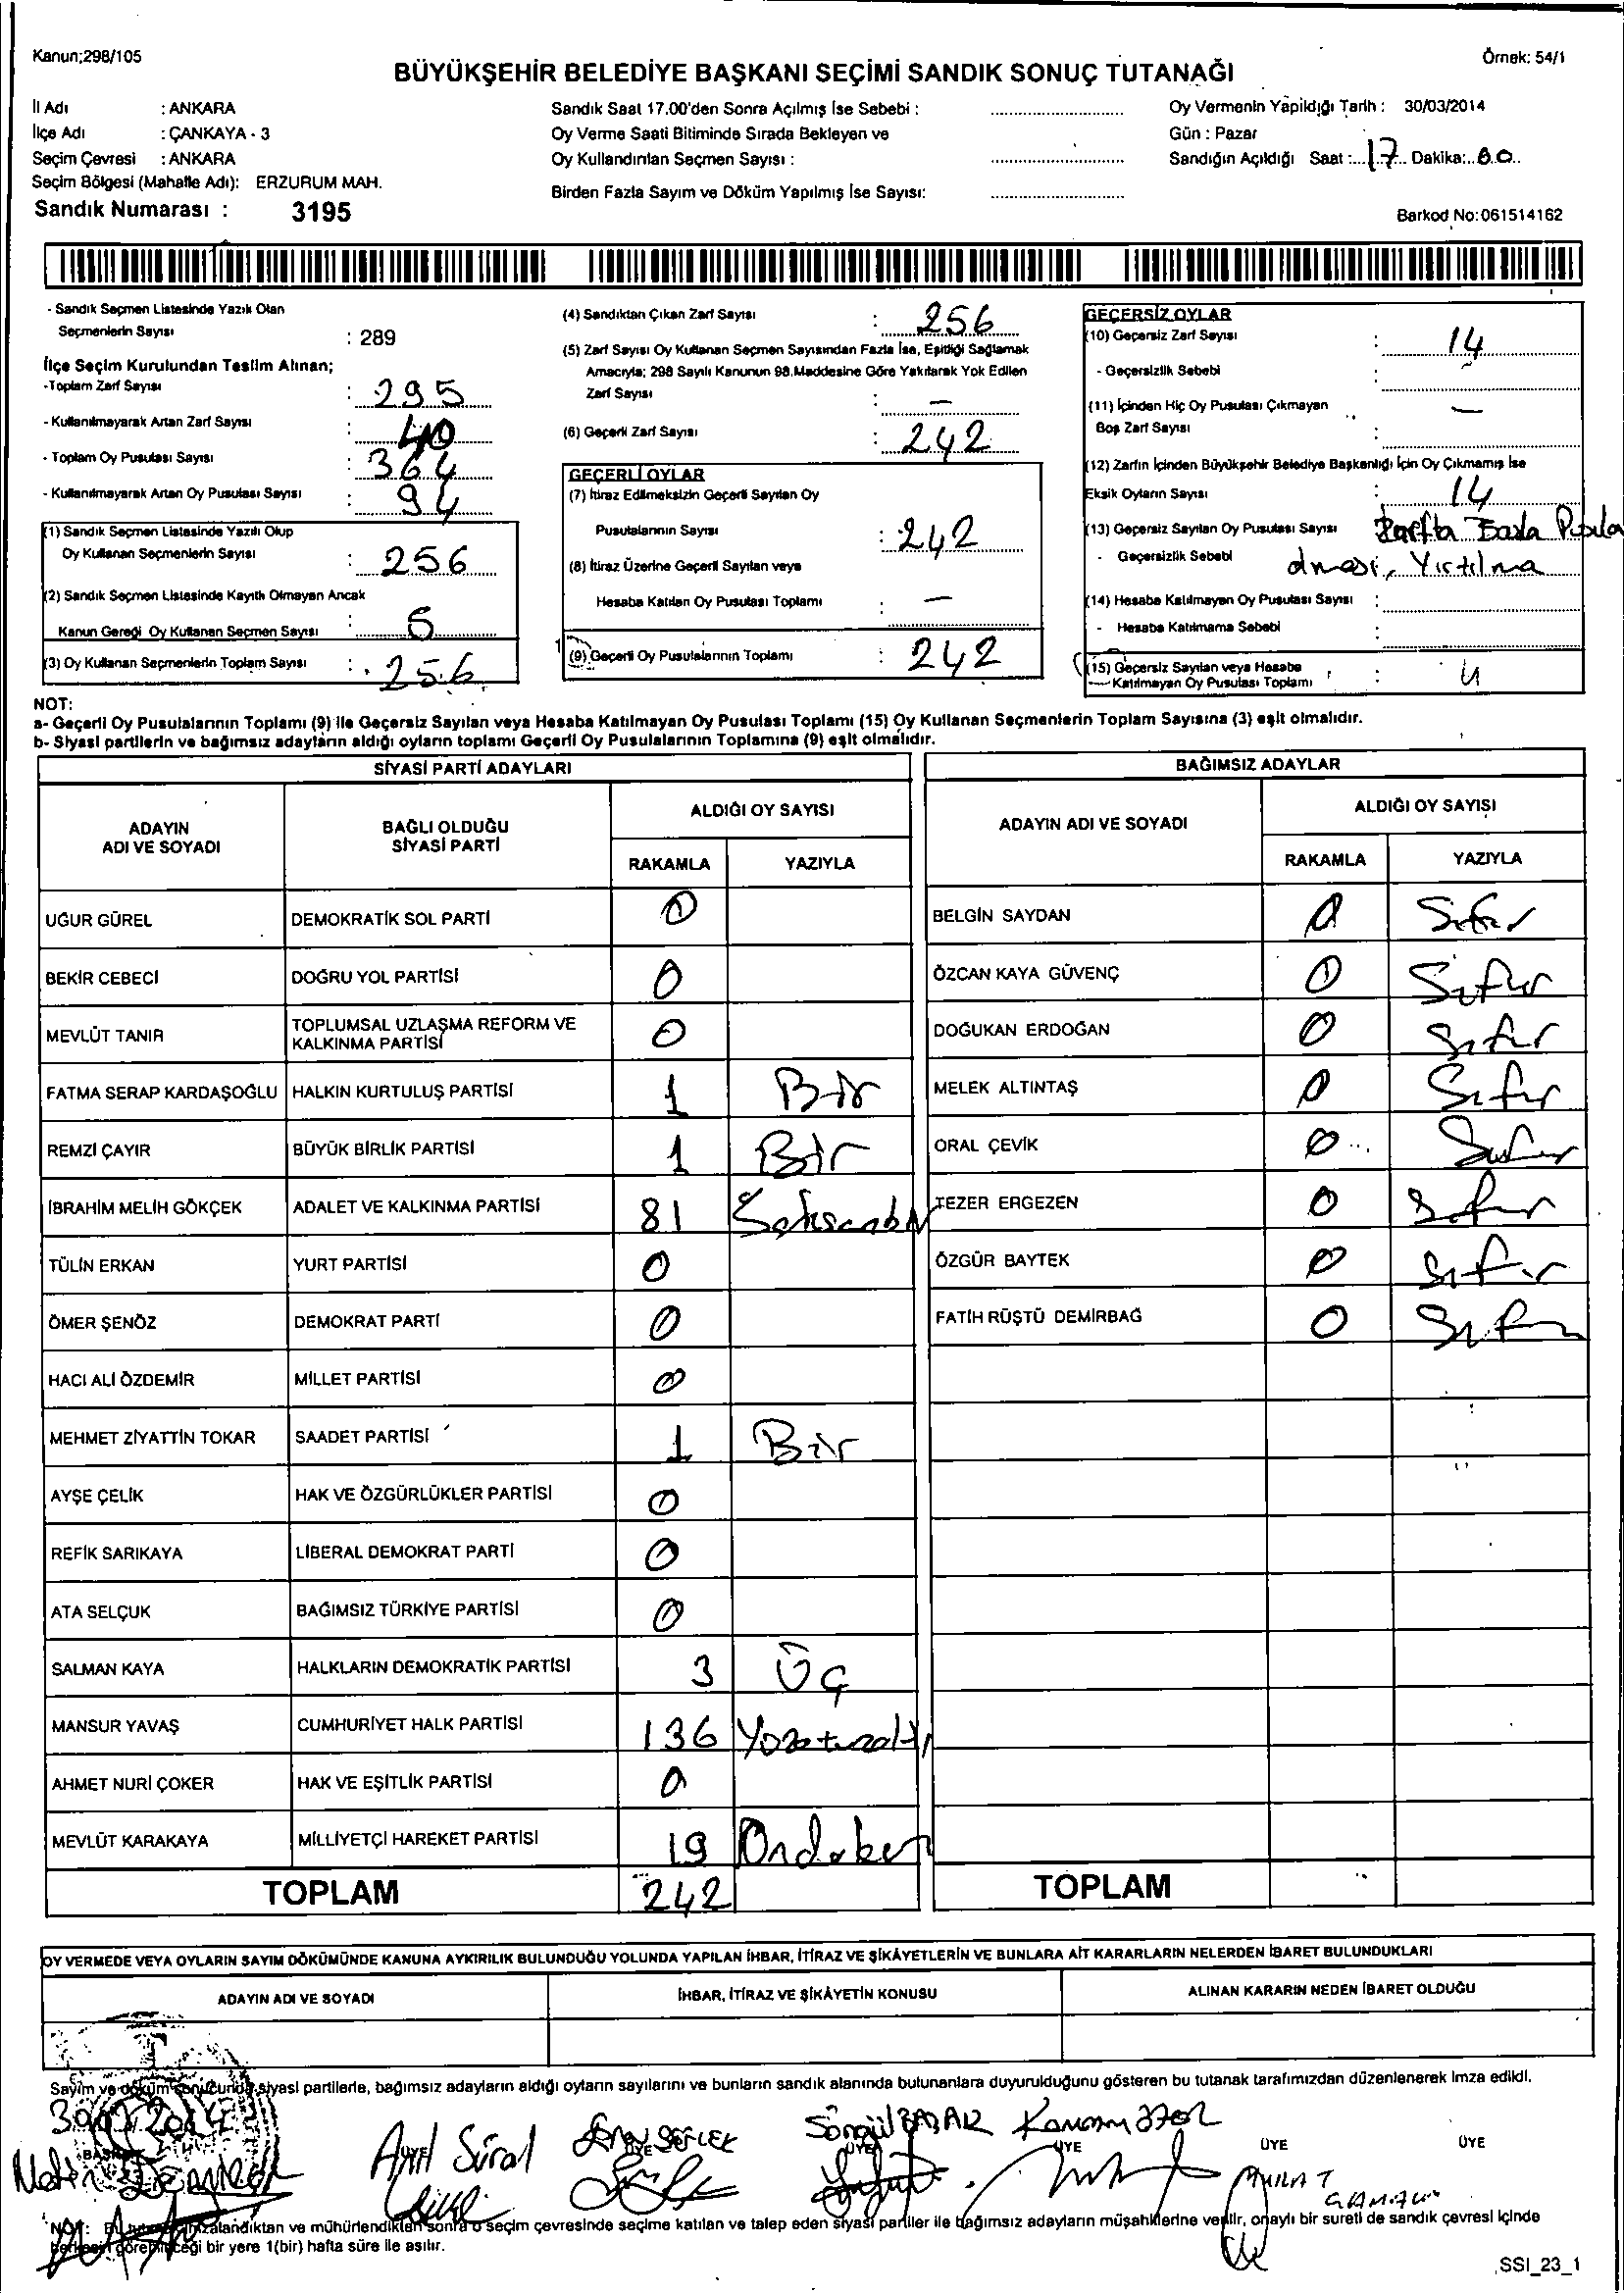 Kanun;298/105
Örnek: 54/1
BÜYÜKŞEHİR BELEDİYE BAŞKANI SEÇİMİ SANDIK SONUÇ TUTANAĞI
İl Adı : ANKARA
İlçe Adı : ÇANKAYA - 3
Seçim Çevresi : ANKARA
Seçim Bölgesi (Mahalle Adı): ERZURUM MAH.
Sandık Numarası : 3195
Sandık Saat 17.00'den Sonra Açılmış İse Sebebi :
Oy Verme Saati Bitiminde Sırada Bekleyen ve
Oy Kullandırılan Seçmen Sayısı :
Birden Fazla Sayım ve Döküm Yapılmış İse Sayısı:
Oy Vermenin Yapıldığı Tarih : 30/03/2014
Gün : Pazar
Sandığın Açıldığı Saat : 17 Dakika:
Barkod No:061514162
- Sandık Seçmen Listesinde Yazılı Olan
Seçmenlerin Sayısı : 289
İlçe Seçim Kurulundan Teslim Alınan;
-Toplam Zarf Sayısı : 295
- Kullanılmayarak Artan Zarf Sayısı : 40
- Toplam Oy Pusulası Sayısı : 364
- Kullanılmayarak Artan Oy Pusulası Sayısı : 94
(1) Sandık Seçmen Listesinde Yazılı Olup
Oy Kullanan Seçmenlerin Sayısı : 256
(2) Sandık Seçmen Listesinde Kayıtlı Olmayan Ancak
Kanun Gereği Oy Kullanan Seçmen Sayısı :
(3) Oy Kullanan Seçmenlerin Toplam Sayısı : 256
(4) Sandıktan Çıkan Zarf Sayısı : 256
(5) Zarf Sayısı Oy Kullanan Seçmen Sayısından Fazla İse, Eşitliği Sağlamak
Amacıyla; 298 Sayılı Kanunun 98.Maddesine Göre Yakılarak Yok Edilen
Zarf Sayısı : —
(6) Geçerli Zarf Sayısı : 242
GEÇERLİ OYLAR
(7) İtiraz Edilmeksizin Geçerli Sayılan Oy
Pusulalarının Sayısı : 242
(8) İtiraz Üzerine Geçerli Sayılan veya
Hesaba Katılan Oy Pusulası Toplamı : —
(9) Geçerli Oy Pusulalarının Toplamı : 242
GEÇERSİZ OYLAR
(10) Geçersiz Zarf Sayısı : 14
- Geçersizlik Sebebi :
(11) İçinden Hiç Oy Pusulası Çıkmayan
Boş Zarf Sayısı : —
(12) Zarfın İçinden Büyükşehir Belediye Başkanlığı İçin Oy Çıkmamış İse
Eksik Oyların Sayısı : 14
(13) Geçersiz Sayılan Oy Pusulası Sayısı : Zarfta Fazla Pusula
- Geçersizlik Sebebi olması, Yırtılma
(14) Hesaba Katılmayan Oy Pusulası Sayısı :
- Hesaba Katılmama Sebebi :
(15) Geçersiz Sayılan veya Hesaba
Katılmayan Oy Pusulası Toplamı :
NOT:
a- Geçerli Oy Pusulalarının Toplamı (9) ile Geçersiz Sayılan veya Hesaba Katılmayan Oy Pusulası Toplamı (15) Oy Kullanan Seçmenlerin Toplam Sayısına (3) eşit olmalıdır.
b- Siyasi partilerin ve bağımsız adayların aldığı oyların toplamı Geçerli Oy Pusulalarının Toplamına (9) eşit olmalıdır.
SİYASİ PARTİ ADAYLARI
BAĞIMSIZ ADAYLAR
ADAYIN ADI VE SOYADI
BAĞLI OLDUĞU SİYASİ PARTİ
ALDIĞI OY SAYISI
RAKAMLA YAZIYLA
ADAYIN ADI VE SOYADI
ALDIĞI OY SAYISI
RAKAMLA YAZIYLA
UĞUR GÜREL DEMOKRATİK SOL PARTİ 0 BELGİN SAYDAN 0 Sıfır
BEKİR CEBECİ DOĞRU YOL PARTİSİ 0 ÖZCAN KAYA GÜVENÇ 0 Sıfır
MEVLÜT TANIR TOPLUMSAL UZLAŞMA REFORM VE KALKINMA PARTİSİ 0 DOĞUKAN ERDOĞAN 0 Sıfır
FATMA SERAP KARDAŞOĞLU HALKIN KURTULUŞ PARTİSİ 1 Bir MELEK ALTINTAŞ 0 Sıfır
REMZİ ÇAYIR BÜYÜK BİRLİK PARTİSİ 1 Bir ORAL ÇEVİK 0 Sıfır
İBRAHİM MELİH GÖKÇEK ADALET VE KALKINMA PARTİSİ 81 Seksenbir TEZER ERGEZEN 0 Sıfır
TÜLİN ERKAN YURT PARTİSİ 0 ÖZGÜR BAYTEK 0 Sıfır
ÖMER ŞENÖZ DEMOKRAT PARTİ 0 FATİH RÜŞTÜ DEMİRBAĞ 0 Sıfır
HACI ALİ ÖZDEMİR MİLLET PARTİSİ 0
MEHMET ZİYATTİN TOKAR SAADET PARTİSİ 1 Bir
AYŞE ÇELİK HAK VE ÖZGÜRLÜKLER PARTİSİ 0
REFİK SARIKAYA LİBERAL DEMOKRAT PARTİ 0
ATA SELÇUK BAĞIMSIZ TÜRKİYE PARTİSİ 0
SALMAN KAYA HALKLARIN DEMOKRATİK PARTİSİ 3 Üç
MANSUR YAVAŞ CUMHURİYET HALK PARTİSİ 136 Yüzotuzaltı
AHMET NURİ ÇOKER HAK VE EŞİTLİK PARTİSİ 0
MEVLÜT KARAKAYA MİLLİYETÇİ HAREKET PARTİSİ 19 Ondokuz
TOPLAM 242 TOPLAM
OY VERMEDE VEYA OYLARIN SAYIM DÖKÜMÜNDE KANUNA AYKIRILIK BULUNDUĞU YOLUNDA YAPILAN İHBAR, İTİRAZ VE ŞİKÂYETLERİN VE BUNLARA AİT KARARLARIN NELERDEN İBARET BULUNDUKLARI
ADAYIN ADI VE SOYADI İHBAR, İTİRAZ VE ŞİKÂYETİN KONUSU ALINAN KARARIN NEDEN İBARET OLDUĞU
Sayım ve döküm sonucunda siyasi partilerle, bağımsız adayların aldığı oyların sayılarını ve bunların sandık alanında bulunanlara duyurulduğunu gösteren bu tutanak tarafımızdan düzenlenerek imza edildi.
Songül BAŞAR
BAŞKAN ÜYE ÜYE ÜYE ÜYE ÜYE ÜYE
Anıl Süral
MURAT
NOT: Bu tutanak imzalandıktan ve mühürlendikten sonra o seçim çevresinde seçime katılan ve talep eden siyasi partiler ile bağımsız adayların müşahitlerine verilir, onaylı bir sureti de sandık çevresi içinde
herkesin görebileceği bir yere 1(bir) hafta süre ile asılır.
SSI_23_1